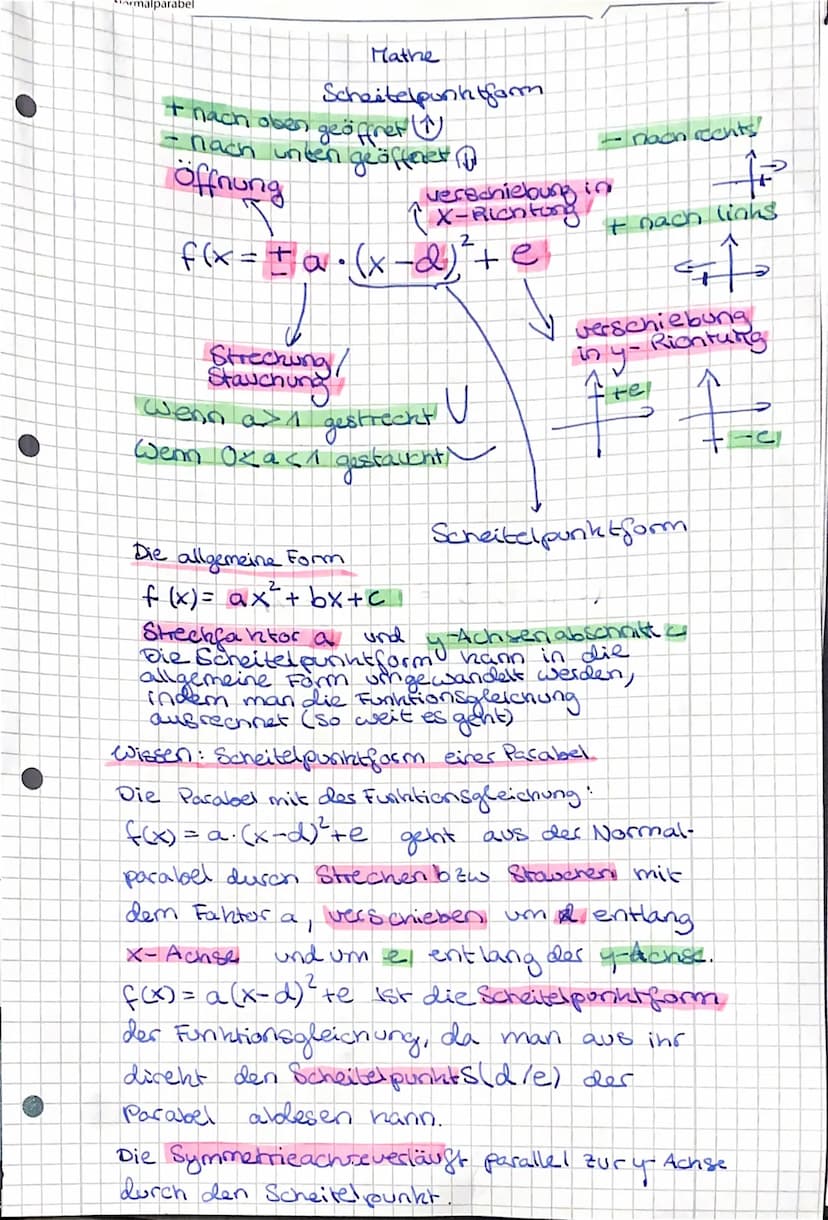 Normalparabel
Mathe
Scheitelpunktform
+ nach oben geöffnet
- nach unten geöffnet
Öffnung
- nach rechts
verschiebung in
x-Richtung
+ nach links
f(x = ± a · (x - d)² + e
Streckung/
Stauchung
verschiebung
in y-Richtung
+e
-e
Wenn a > 1 gestreckt
Wenn 0 < a < 1 gestaucht
Scheitelpunktform
Die allgemeine Form
f (x) = ax² + bx + c
Streckfaktor a und y-Achsenabschnitt c
Die Scheitelpunktform kann in die
allgemeine Form umgewandelt werden,
indem man die Funktionsgleichung
ausrechnet (so weit es geht)
Wissen: Scheitelpunktform einer Parabel
Die Parabel mit der Funktionsgleichung:
f(x) = a·(x-d)²+e geht aus der Normal-
parabel durch Strecken bzw Stauchen mit
dem Faktor a, verschieben um d entlang
x-Achse und um e entlang der y-Achse.
f(x) = a(x-d)²+e ist die Scheitelpunktform
der Funktionsgleichung, da man aus ihr
direkt den Scheitelpunkt S(d/e) der
Parabel ablesen kann.
Die Symmetrieachse verläuft parallel zur y-Achse
durch den Scheitelpunkt.